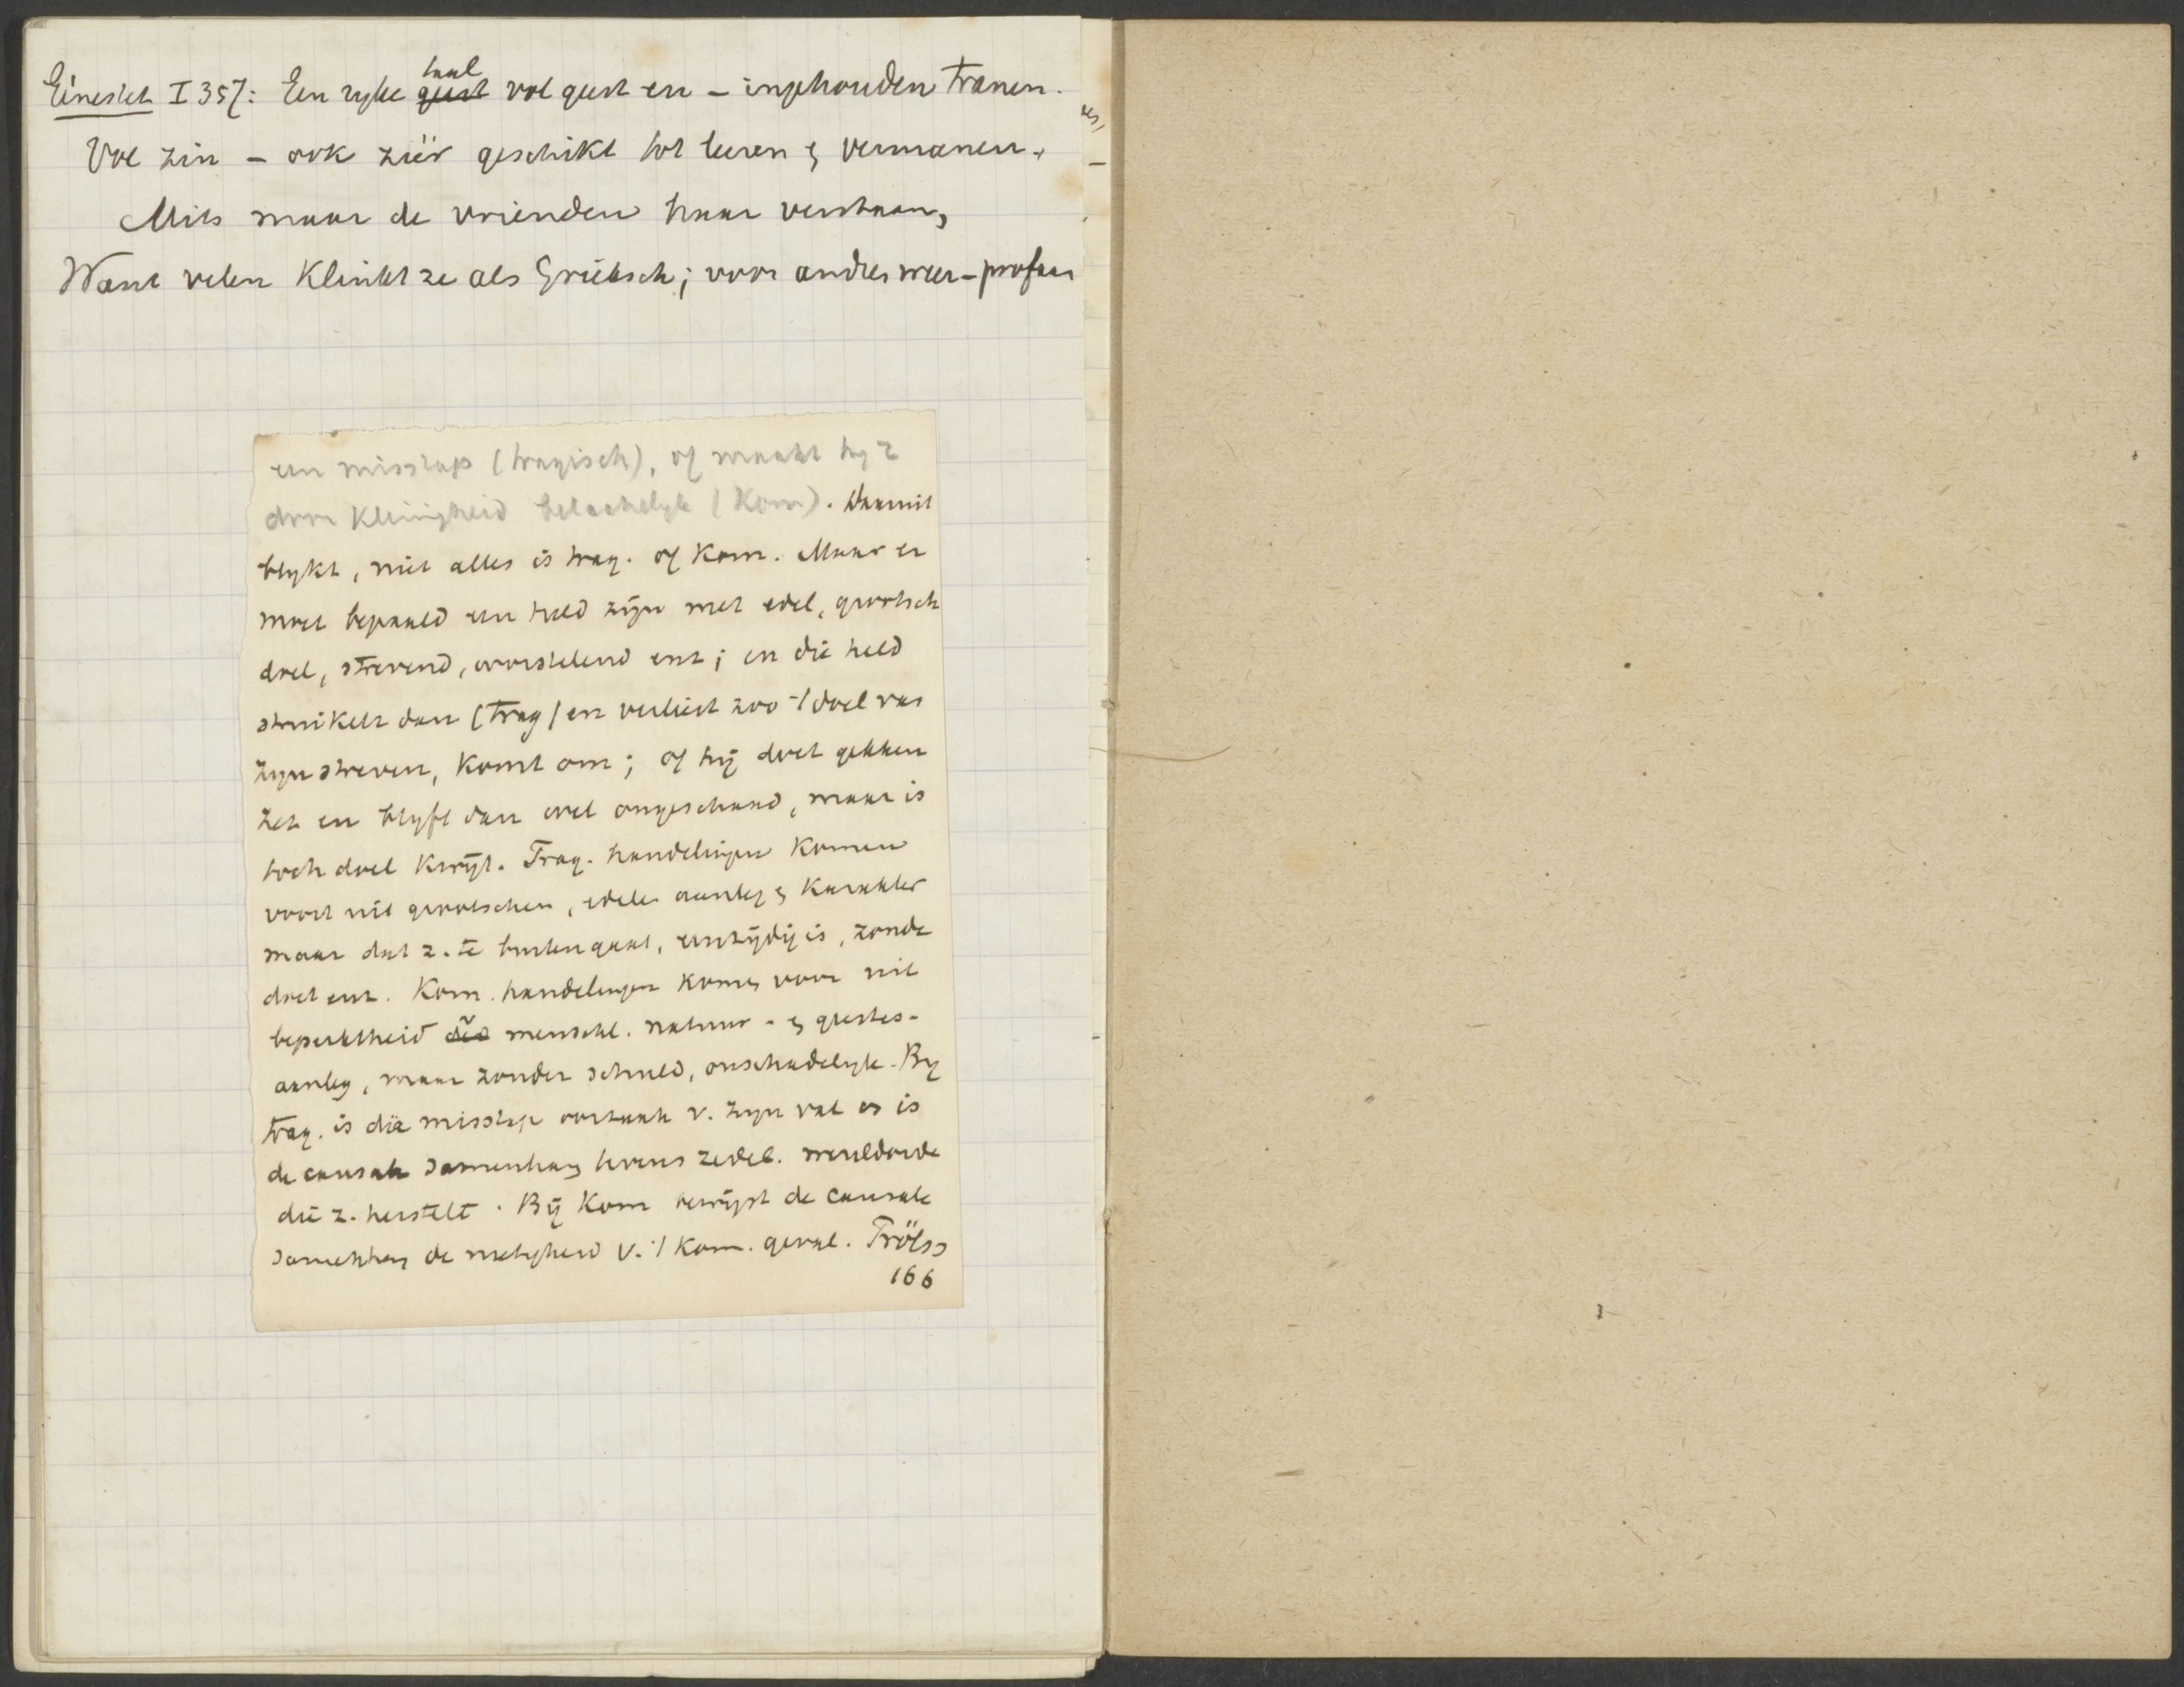 Génestet I 357: Een ryke taal vol geest en – ingehouden tranen.
Vol zin – ook zéér geschikt tot leeren & vermanen.
Mits maar de vrienden haar verstaan,
Want velen klinkt ze als Grieksch; voor andren weer – profaan
een misstap (tragisch), of maakt hy z
door kleinigheid belachelyk (Kom). Daaruit
blykt, niet alles is trag. of kom. Maar er
moet bepaald een held zijn met edel, grootsch
doel, strevend, worstelend enz; en die held
struikelt dan (trag) en verliest zoo 't doel van
zyn streven, komt om; of hij doet gekken
zet en blyft dan wel ongeschaad, maar is
toch doel kwijt. Trag. handelingen komen
voort uit grootschen, edele aanleg & karakter
maar dat z. te buiten gaat, eenzijdig is, zonde
doet enz. Kom. handelingen komen voor uit
beperktheid menschl. natuur - & geestes-
aanleg, maar zonder schuld, onschadelyk. By
trag. is die misstap oorzaak v. zyn val en is
de causale samenhang tevens zedel. wereldorde
die z. herstelt. Bij Kom bewijst de causale
samenhang de nietigheid v. 't kom. geval. Tröls
166